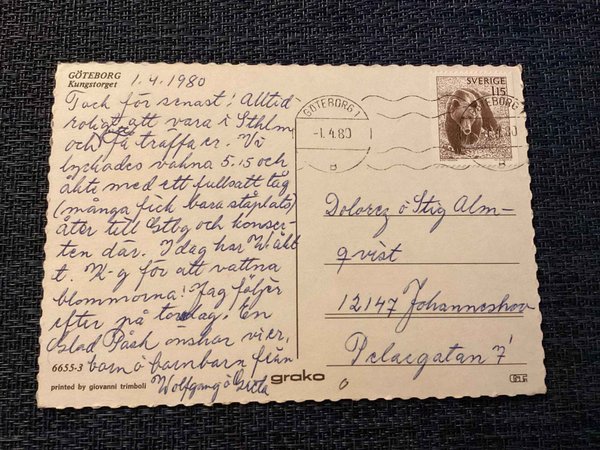 GÖTEBORG
Kungstorget
1.4.1980
Tack för senast! Alltid
roligt att vara i Sthlm
och få träffa er. Vi
lyckades vakna 5.15 och
åkte med ett fullsatt tåg
(många fick bara ståplats)
åter till Gtbg och konser-
ten där. I dag har W åkt
t. K-g för att vattna
blommorna! Jag följer
efter på torsdag. En
glad Påsk önskar vi er,
barn o barnbarn från
Wolfgang o Greta
6655-3
printed by giovanni trimboli
grako
GÖTEBORG 1
-1.4.80
SVERIGE
115
Dolorez o Stig Alm-
qvist
12147 Johanneshov
Pelargatan 7